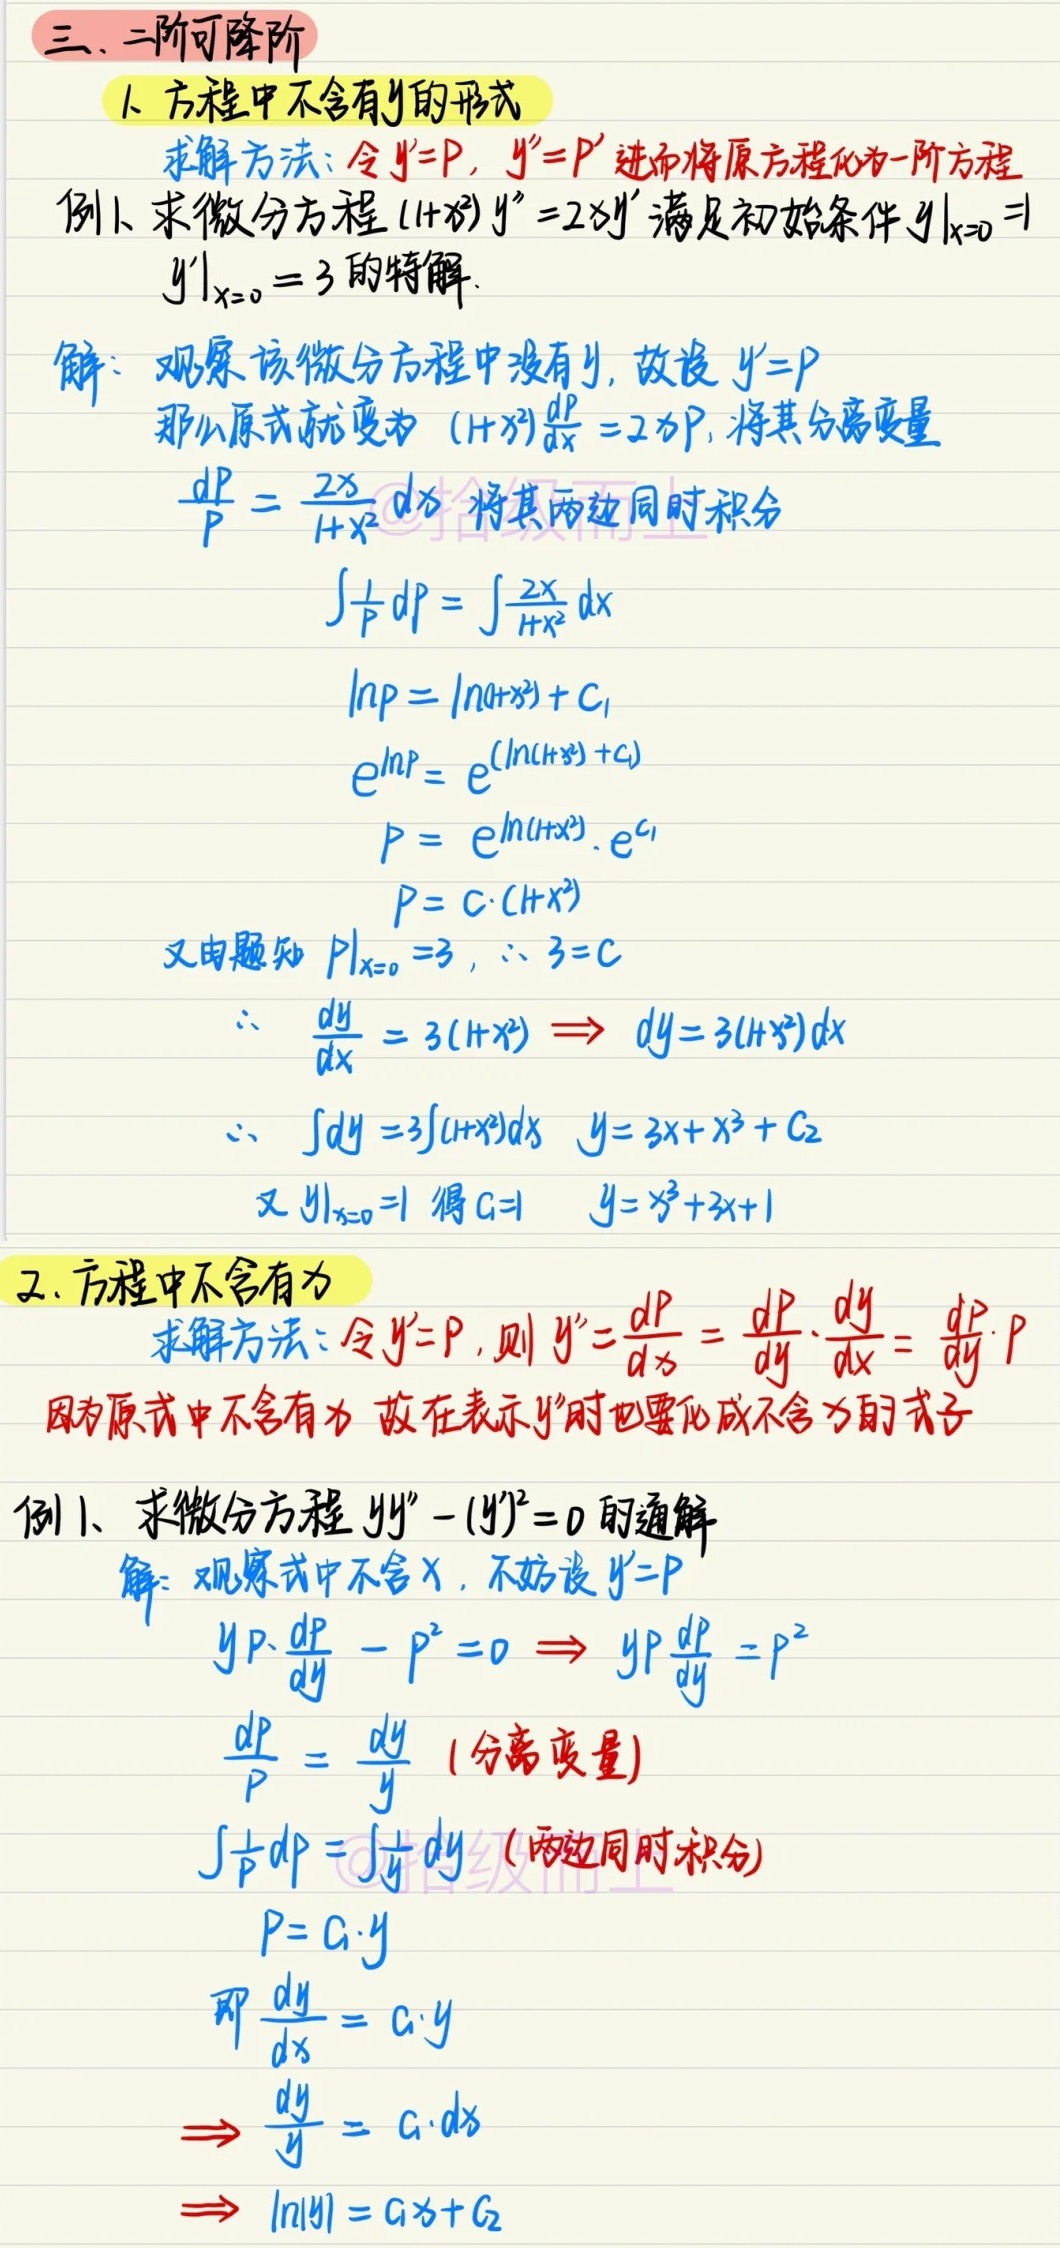 三、二阶可降阶
1、方程中不含有y的形式
求解方法：令y'=P，y''=P' 进而将原方程化为一阶方程
例1、求微分方程(1+x²)y''=2xy'满足初始条件y|x=0=1
y'|x=0=3的特解.
解：观察该微分方程中没有y，故设 y'=P
那么原式就变为 (1+x²)dP/dx=2xP，将其分离变量
dP/P = 2x/(1+x²) dx 将其两边同时积分
@拾级而上
∫1/P dP = ∫2x/(1+x²) dx
lnP = ln(1+x²)+C₁
e^lnP = e^(ln(1+x²)+C₁)
P = e^ln(1+x²)·e^C₁
P = C·(1+x²)
又由题知 P|x=0=3，∴ 3=C
∴ dy/dx = 3(1+x²) ⟹ dy=3(1+x²)dx
∴ ∫dy=3∫(1+x²)dx y=3x+x³+C₂
又 y|x=0=1 得C₂=1 y=x³+3x+1
2、方程中不含有x
求解方法：令y'=P，则 y''=dP/dx = dP/dy·dy/dx = dP/dy·P
因为原式中不含有x 故在表示y''时也要化成不含x的式子
例1、求微分方程 yy''-(y')²=0 的通解
解：观察式中不含x，不妨设 y'=P
yP·dP/dy - P²=0 ⟹ yP dP/dy = P²
dP/P = dy/y (分离变量)
∫1/P dP = ∫1/y dy (两边同时积分)
@拾级而上
P=C₁·y
即 dy/dx = C₁·y
⟹ dy/y = C₁·dx
⟹ ln|y| = C₁x+C₂